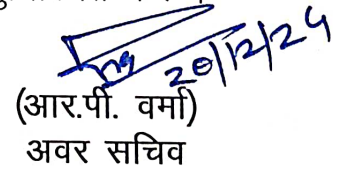 20/12/24
(आर.पी. वर्मा)
अवर सचिव